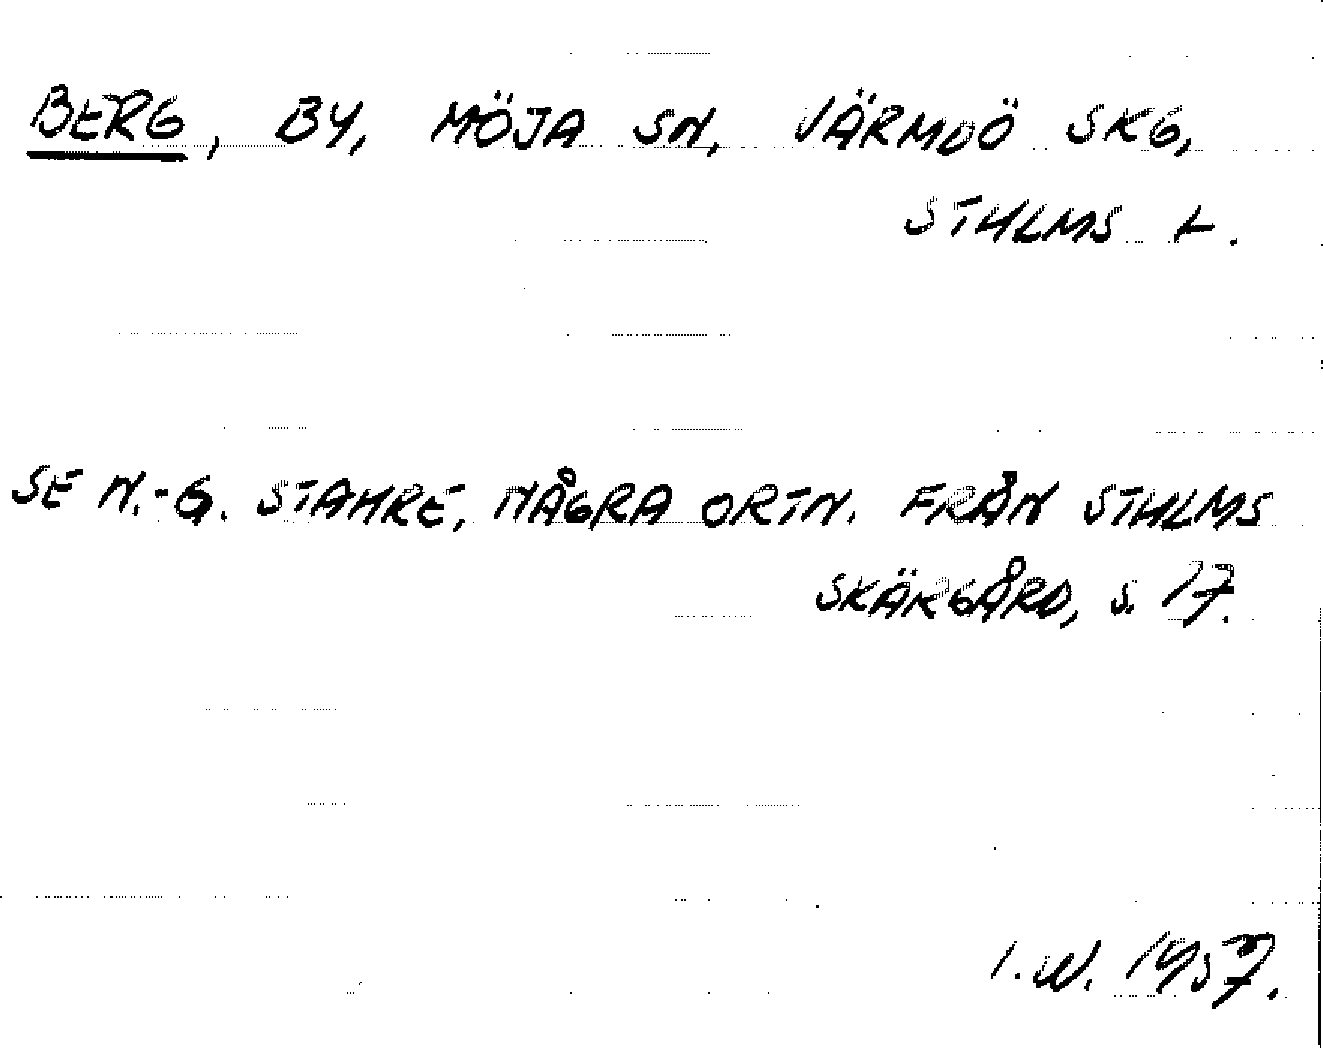 BERG, BY, MÖJA SN, VÄRMDÖ SKG,
STHLMS L.
SE N.-G. STAHRE, NÅGRA ORTN. FRÅN STHLMS
SKÄRGÅRD, S. 17.
I.W. 1957.